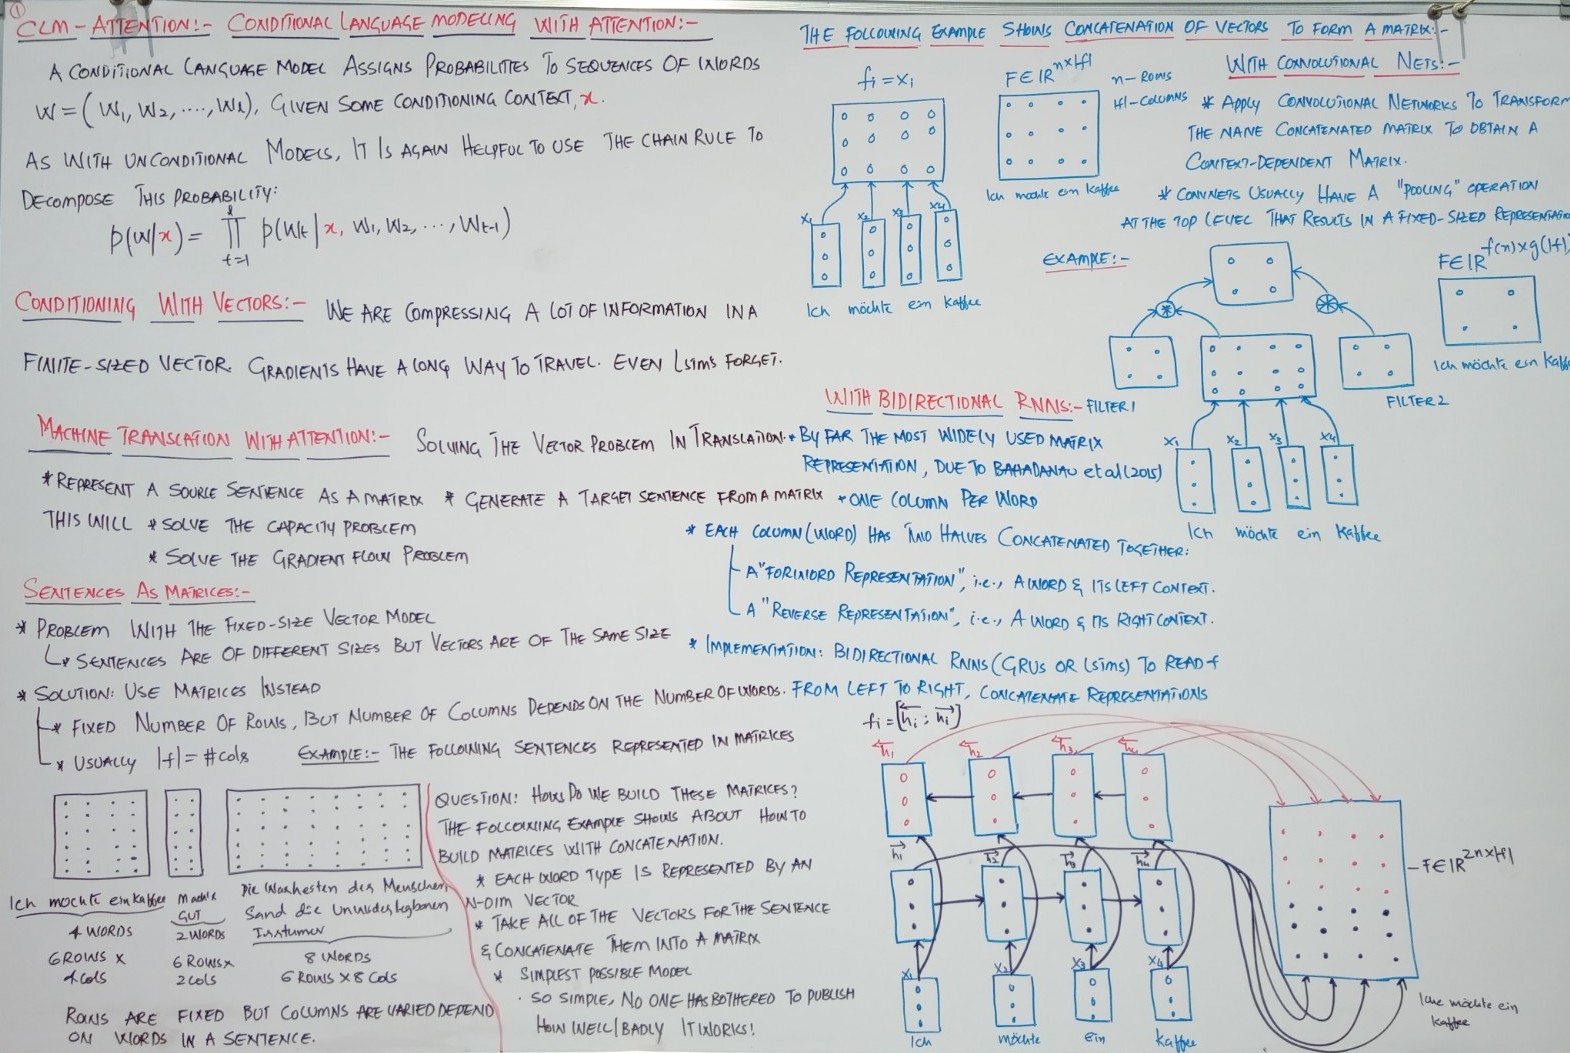 1
CLM-ATTENTION:- CONDITIONAL LANGUAGE MODELING WITH ATTENTION:-
A CONDITIONAL LANGUAGE MODEL ASSIGNS PROBABILITIES TO SEQUENCES OF WORDS
W=(W1, W2, ...., Wl), GIVEN SOME CONDITIONING CONTEXT, x.
AS WITH UNCONDITIONAL MODELS, IT IS AGAIN HELPFUL TO USE THE CHAIN RULE TO
DECOMPOSE THIS PROBABILITY:
p(w|x) = ∏ t=1 l p(wt|x, w1, w2, ..., wt-1)
CONDITIONING WITH VECTORS:- WE ARE COMPRESSING A LOT OF INFORMATION IN A
FINITE-SIZED VECTOR. GRADIENTS HAVE A LONG WAY TO TRAVEL. EVEN LSTMS FORGET.
MACHINE TRANSLATION WITH ATTENTION:- SOLVING THE VECTOR PROBLEM IN TRANSLATION.
* REPRESENT A SOURCE SENTENCE AS A MATRIX * GENERATE A TARGET SENTENCE FROM A MATRIX
THIS WILL * SOLVE THE CAPACITY PROBLEM
* SOLVE THE GRADIENT FLOW PROBLEM
SENTENCES AS MATRICES:-
* PROBLEM WITH THE FIXED-SIZE VECTOR MODEL
SENTENCES ARE OF DIFFERENT SIZES BUT VECTORS ARE OF THE SAME SIZE
* SOLUTION: USE MATRICES INSTEAD
* FIXED NUMBER OF ROWS, BUT NUMBER OF COLUMNS DEPENDS ON THE NUMBER OF WORDS.
* USUALLY |f| = #cols EXAMPLE:- THE FOLLOWING SENTENCES REPRESENTED IN MATRICES
Ich mochte ein kaffee
4 WORDS
6 ROWS X
4 cols
Mach's
GUT
2 WORDS
6 ROWS X
2 cols
Die Warhesten des Menschen
Sand die
Irrtumer
8 WORDS
6 ROWS X 8 Cols
ROWS ARE FIXED BUT COLUMNS ARE VARIED DEPEND
ON WORDS IN A SENTENCE.
QUESTION: HOW DO WE BUILD THESE MATRICES?
THE FOLLOWING EXAMPLE SHOWS ABOUT HOW TO
BUILD MATRICES WITH CONCATENATION.
* EACH WORD TYPE IS REPRESENTED BY AN
N-DIM VECTOR
* TAKE ALL OF THE VECTORS FOR THE SENTENCE
& CONCATENATE THEM INTO A MATRIX
* SIMPLEST POSSIBLE MODEL
. SO SIMPLE, NO ONE HAS BOTHERED TO PUBLISH
HOW WELL/BADLY IT WORKS!
THE FOLLOWING EXAMPLE SHOWS CONCATENATION OF VECTORS TO FORM A MATRIX:-
fi = xi
x1 x2 x3 x4
Ich möchte ein Kaffee
F∈IR n×|f|
n-ROWS
|f|-COLUMNS
Ich mochte ein kaffee
WITH CONVOLUTIONAL NETS:-
* APPLY CONVOLUTIONAL NETWORKS TO TRANSFORM
THE NAIVE CONCATENATED MATRIX TO OBTAIN A
CONTEXT-DEPENDENT MATRIX.
* CONVNETS USUALLY HAVE A "POOLING" OPERATION
AT THE TOP LEVEL THAT RESULTS IN A FIXED-SIZED REPRESENTATIO
EXAMPLE:-
F∈IR f(n)×g(|f|)
Ich möchte ein Kaff
FILTER1
FILTER2
x1 x2 x3 x4
Ich möchte ein Kaffee
WITH BIDIRECTIONAL RNNS:-
* BY FAR THE MOST WIDELY USED MATRIX
REPRESENTATION, DUE TO BAHADANAU et al (2015)
* ONE COLUMN PER WORD
* EACH COLUMN (WORD) HAS TWO HALVES CONCATENATED TOGETHER:
A "FORWORD REPRESENTATION", i.e., A WORD & ITS LEFT CONTEXT.
A "REVERSE REPRESENTATION", i.e., A WORD & ITS RIGHT CONTEXT.
* IMPLEMENTATION: BIDIRECTIONAL RNNS (GRUS OR LSTMS) TO READ f
FROM LEFT TO RIGHT, CONCATENATE REPRESENTATIONS
fi = [←hi ; →hi]
←h1 ←h2 ←h3 ←h4
→h1 →h2 →h3 →h4
x1 x2 x3 x4
Ich möchte ein Kaffee
F∈IR 2n×|f|
Iche möchte ein
kaffee